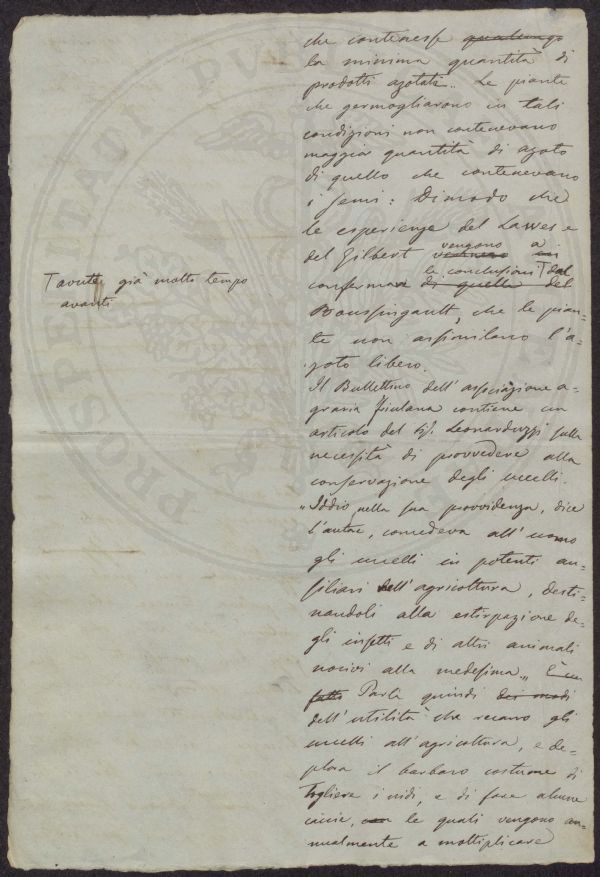 che contenesse qualunqe
la minima quantità di
prodotti azotati. Le piante
che germogliarono in tali
condizioni non contenevano
maggior quantità di azoto
di quello che contenevano
i semi: Dimodo che
le esperienze del Lawes e
del Gilbert vedranno vengono a
confermare di quelle le conclusioni T dal del
Boussingault, che le pian=
te non assimilano l'a=
zoto libero.
T avute già molto tempo
avanti
Il Bullettino dell'associazione a=
graria friulana contiene un
articolo del Sig. Leonarduzzi sulla
necessità di provvedere alla
conservazione degli uccelli.
"Iddio nella sua provvidenza, dice
l'autore, concedeva all'uomo
gli uccelli in potenti au=
siliari dell'agricoltura, desti=
nandoli alla estirpazione de=
gli insetti e di altri animali
nocivi alla medesima„ È in
fatti Parla quindi dei modi
dell'utilità che recano gli
uccelli all'agricoltura, e de=
plora il barbaro costume di
Togliere i nidi, e di fare alcune
caccie, con le quali vengono an=
nualmente a moltiplicare
PROSPERITATI PVB